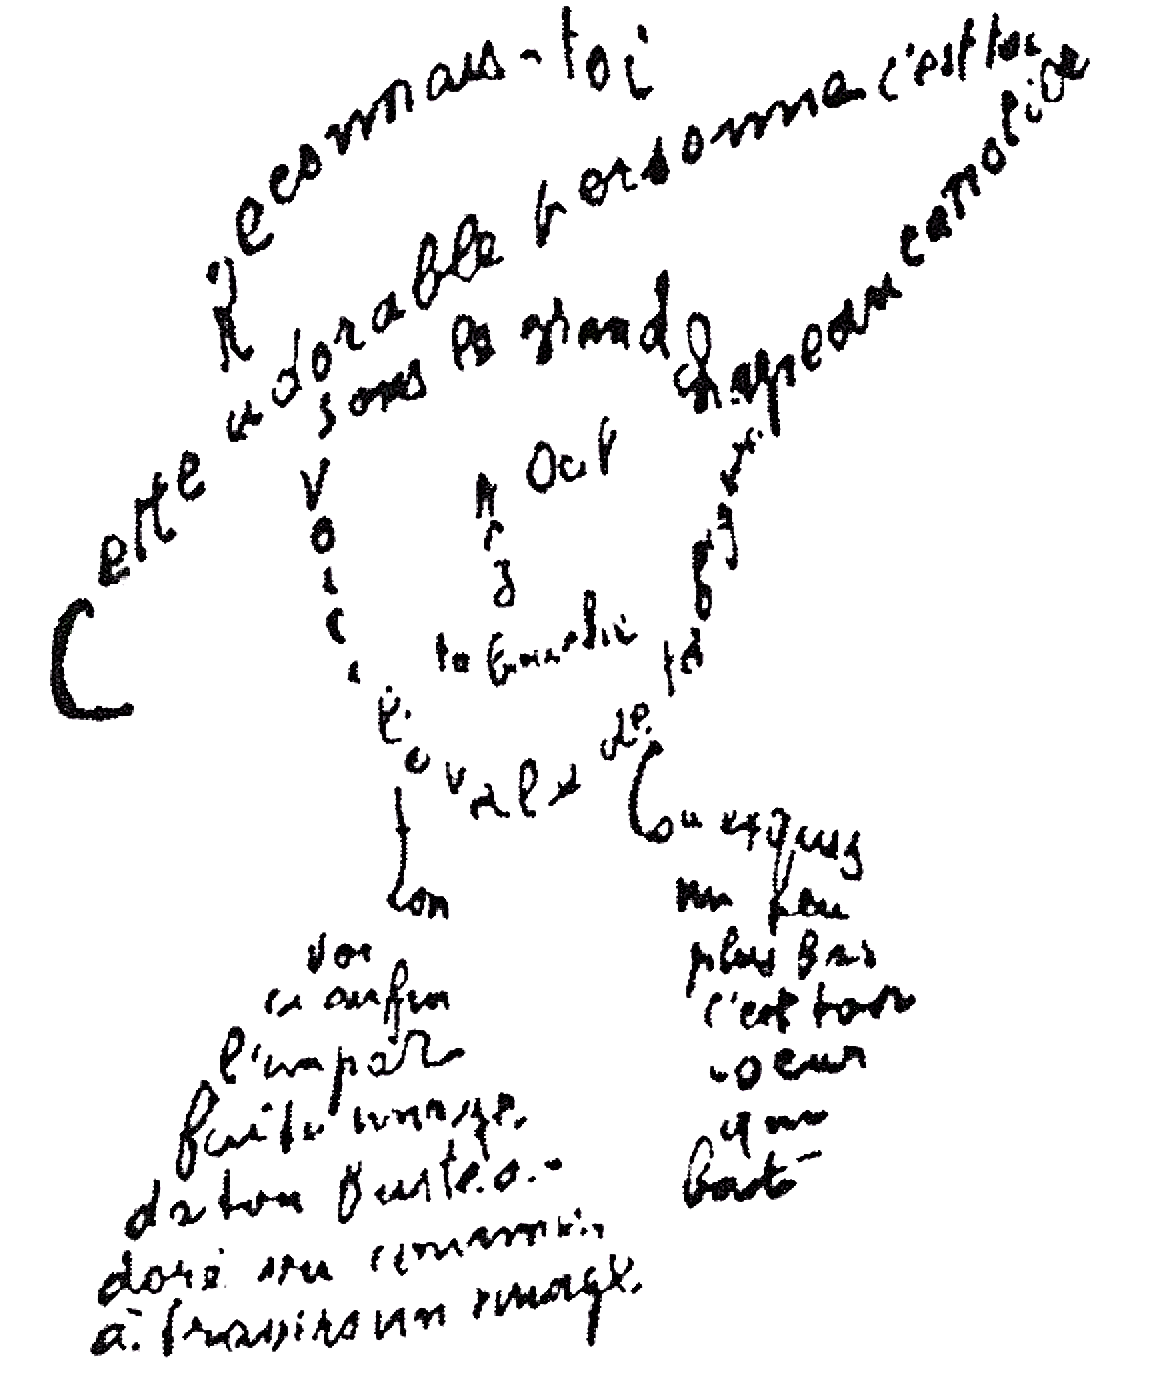 Reconnais-toi
Cette adorable personne c'est toi
sous le grand chapeau canotier
Oeil
Nez
ta bouche
Voici l'ovale de ta figure
ton
cou exquis
voi
ci enfin
l'impar
faite image
de ton buste a
doré vu comme
à travers un nuage
un peu
plus bas
c'est ton
coeur
qui
bat